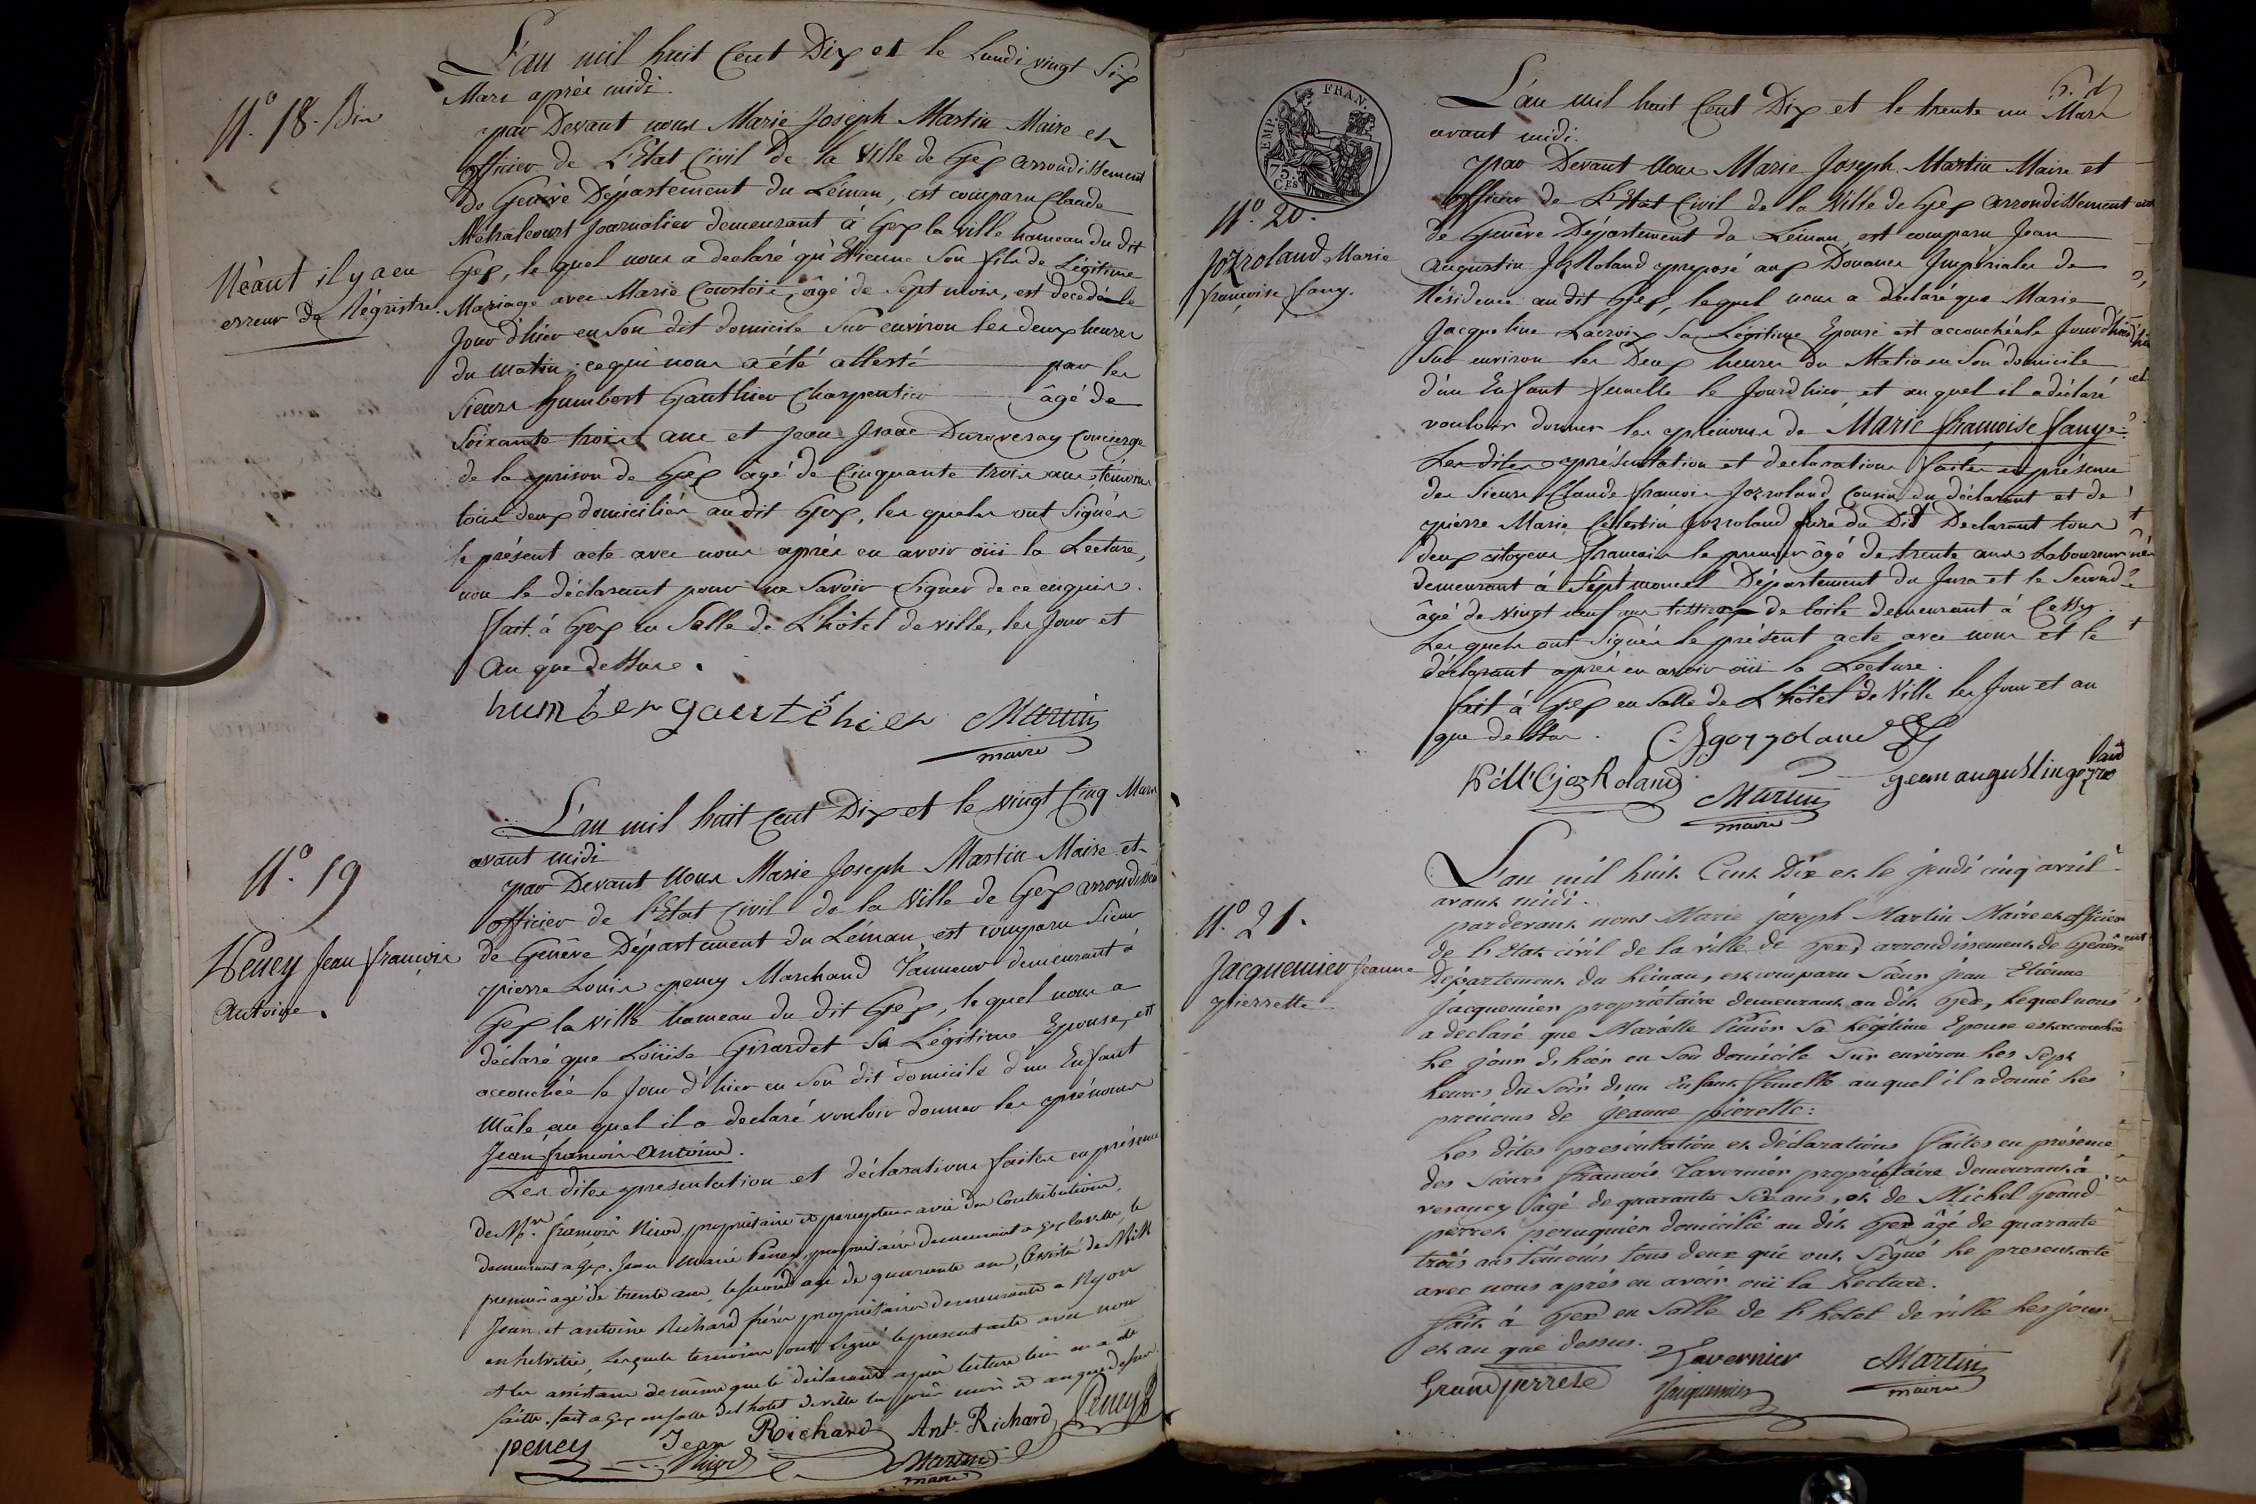 L'an mil huit Cent Dix et le Lundi vingt Six
Mars après midi.
N.º 18. Bis
par Devant nous Marie Joseph Martin Maire et
officier de L'Etat Civil de la Ville de Gex arrondissement
de Genève Département du Léman, est comparu Claude
journalier demeurant à Gex la ville hameau du dit
Néant il y a eu
erreur de Régistre.
Gex, le quel nous a declaré qu'Etienne Son fils de Légitime
Mariage avec Marie Courtois, âgé de Sept mois, est decedé le
Jour d'hier en Son dit domicile Sur environ les deux heures
du matin; ce qui nous a été attesté par les
Sieurs humbert Gauthier Charpentier âgé de
Soixante trois ans et Jean Isaac Duroveray Concierge
de la prison de Gex âgé de Cinquante trois ans, témoins
tous deux domiciliés au dit Gex, les quels ont Signés
le présent acte avec nous après en avoir öüi la Lecture,
non le déclarant pour ne Savoir Signer de ce enquis.
fait à Gex en Salle de L'hôtel de ville, les Jour et
An que dessus.
humber gautéhier Martin
maire
L'an mil huit Cent Dix et le vingt Cinq Mars
avant midi
N.º 19
Peney Jean françois
Antoine.
par Devant nous Marie Joseph Martin Maire et
officier de l'Etat Civil de la Ville de Gex
de Genêve Département du Leman, est comparu Sieur
pierre Louis peney Marchand Tanneur demeurant à
Gex la Ville hameau du dit Gex, le quel nous a
déclaré que Loüise Girardet Sa Légitime Epouse, est
accouchée le Jour d'hier en Son dit domicile d'un Enfant
Mâle, au quel il a declaré vouloir donner les prénoms
Jean françois Antoine.
Les dites presentation et déclarations faites en présence
de Mr. françois Nicod propriétaire et percepteur des Contributions,
demeurant à Gex. Jean Marie Peney, propriétaire demeurant a Gex la ville, le
premier agé de trente ans, le second agé de quarante ans,
Jean et antoine Richard frères propriétaires demeurants a Nyon
en helvétie, Lesquels temoins ont Signé le present acte avec nous
et les de même que le déclarant après lecture
faitte. fait a Gex en salle de l'hotel de ville les jour mois et an que dessus
peney Jean Richard Ant. Richard Peney
Nicod Martin
maire
EMP. FRAN.
75.
CES
L'an mil huit Cent Dix et le trente un Mars
avant midi.
N.º 20.
Jozroland Marie
françoise fany.
par Devant Nous Marie Joseph Martin Maire et
officier de L'Etat Civil de la Ville de Gex arrondissement
de Genêve Département du Léman, est comparu Jean
Augustin JozRoland préposé aux Douanes Impériales de
Résidence au dit Gex, lequel nous a déclaré que Marie
Jacqueline Lacroix Sa Légitime Epouse est accouchée le Jour d'hier
Sur environ les Deux heures du Matin en Son domicile
d'un Enfant femelle le Jourd'hier, et au quel il a déclaré
vouloir donner les prénoms de Marie françoise fanye
Les dites présentation et declaration faites en présence
des Sieurs Claude françois Jozroland Cousin du déclarant et de
pierre Marie Célestin Jozroland frère du Dit Declarant tous
deux citoyens français le premier âgé de trente ans Laboureur
demeurant à Septmoncel Département du Jura et le Second
âgé de Vingt neuf ans de toile demeurant à Cessy.
Les quels ont Signés le présent acte avec nous et le
déclarant après en avoir öüi la Lecture.
fait à Gex en Salle de L'hôtel de Ville les Jour et an
que dessus.
P. M. C. joz Roland Martin
maire
jean augustin
L'an mil huit Cent Dix et le jeudi cinq avril
avant midi.
N.º 21.
Jacquemier Jeanne
pierrette
pardevant nous Marie joseph Martin Maire et officier
de l'Etat civil de la ville de Gex, arrondissement de Genève
Département du Léman, est comparu Sieur jean Etienne
jacquemier propriétaire demeurant au dit Gex, Lequel nous
a declaré que Sa Légitime Epouse est accouchée
Le jour d'hier en Son domicile Sur environ Les Sept
heures du Soir d'un Enfant femelle auquel il a donné Les
prénoms de jeanne pierrette:
Les dites présentation et déclarations faites en présence
des Sieurs françois Tavernier propriétaire demeurant à
verancy âgé de quarante Six ans, et de Michel Grand
perret peruquier domicilié au dit Gex âgé de quarante
trois ans témoins tous deux qui ont Signé Le present acte
avec nous après en avoir oui la Lecture.
fait à Gex en Salle de L'hotel de ville Les jour
et an que dessus.
Tavernier Martin
Grandperret Jaquemier maire